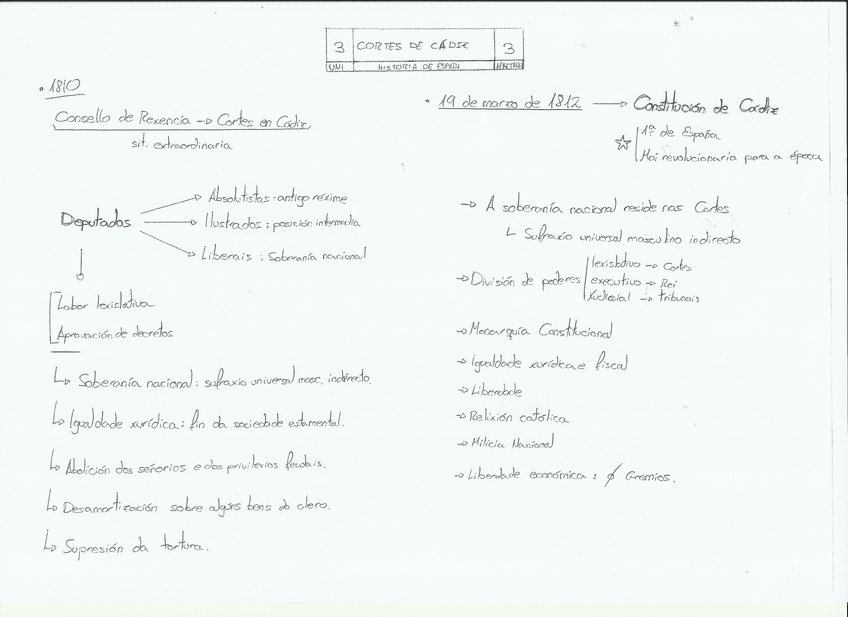 3 CORTES DE CÁDIZ 3
UNI HISTORIA DE ESPAÑA APARTADO
• 1810
Consello de Rexencia → Cortes en Cádiz,
sit. extraordinaria
Deputados
Absolutistas: antigo réxime
Ilustrados: posición intermedia
Liberais: Soberanía nacional
Labor lexislativa
Aprovación de decretos
↳ Soberanía nacional: sufraxio universal masc. indirecto.
↳ Igualdade xurídica: fin da sociedade estamental.
↳ Abolición dos señorios e dos privilexios feudais.
↳ Desamortización sobre algúns bens do clero.
↳ Supresión da tortura.
• 19 de marzo de 1812 → Constitución de Cádiz
☆ 1ª de España
Moi revolucionaria para a época
→ A soberanía nacional reside nas Cortes
↳ Sufraxio universal masculino indirecto
→ División de poderes
lexislativo → Cortes
executivo → Rei
Xudicial → tribunais
→ Monarquía Constitucional
→ Igualdade xurídica e fiscal
→ Liberdade
→ Relixión católica
→ Milicia Nacional
→ Liberdade económica: ∅ Gremios.